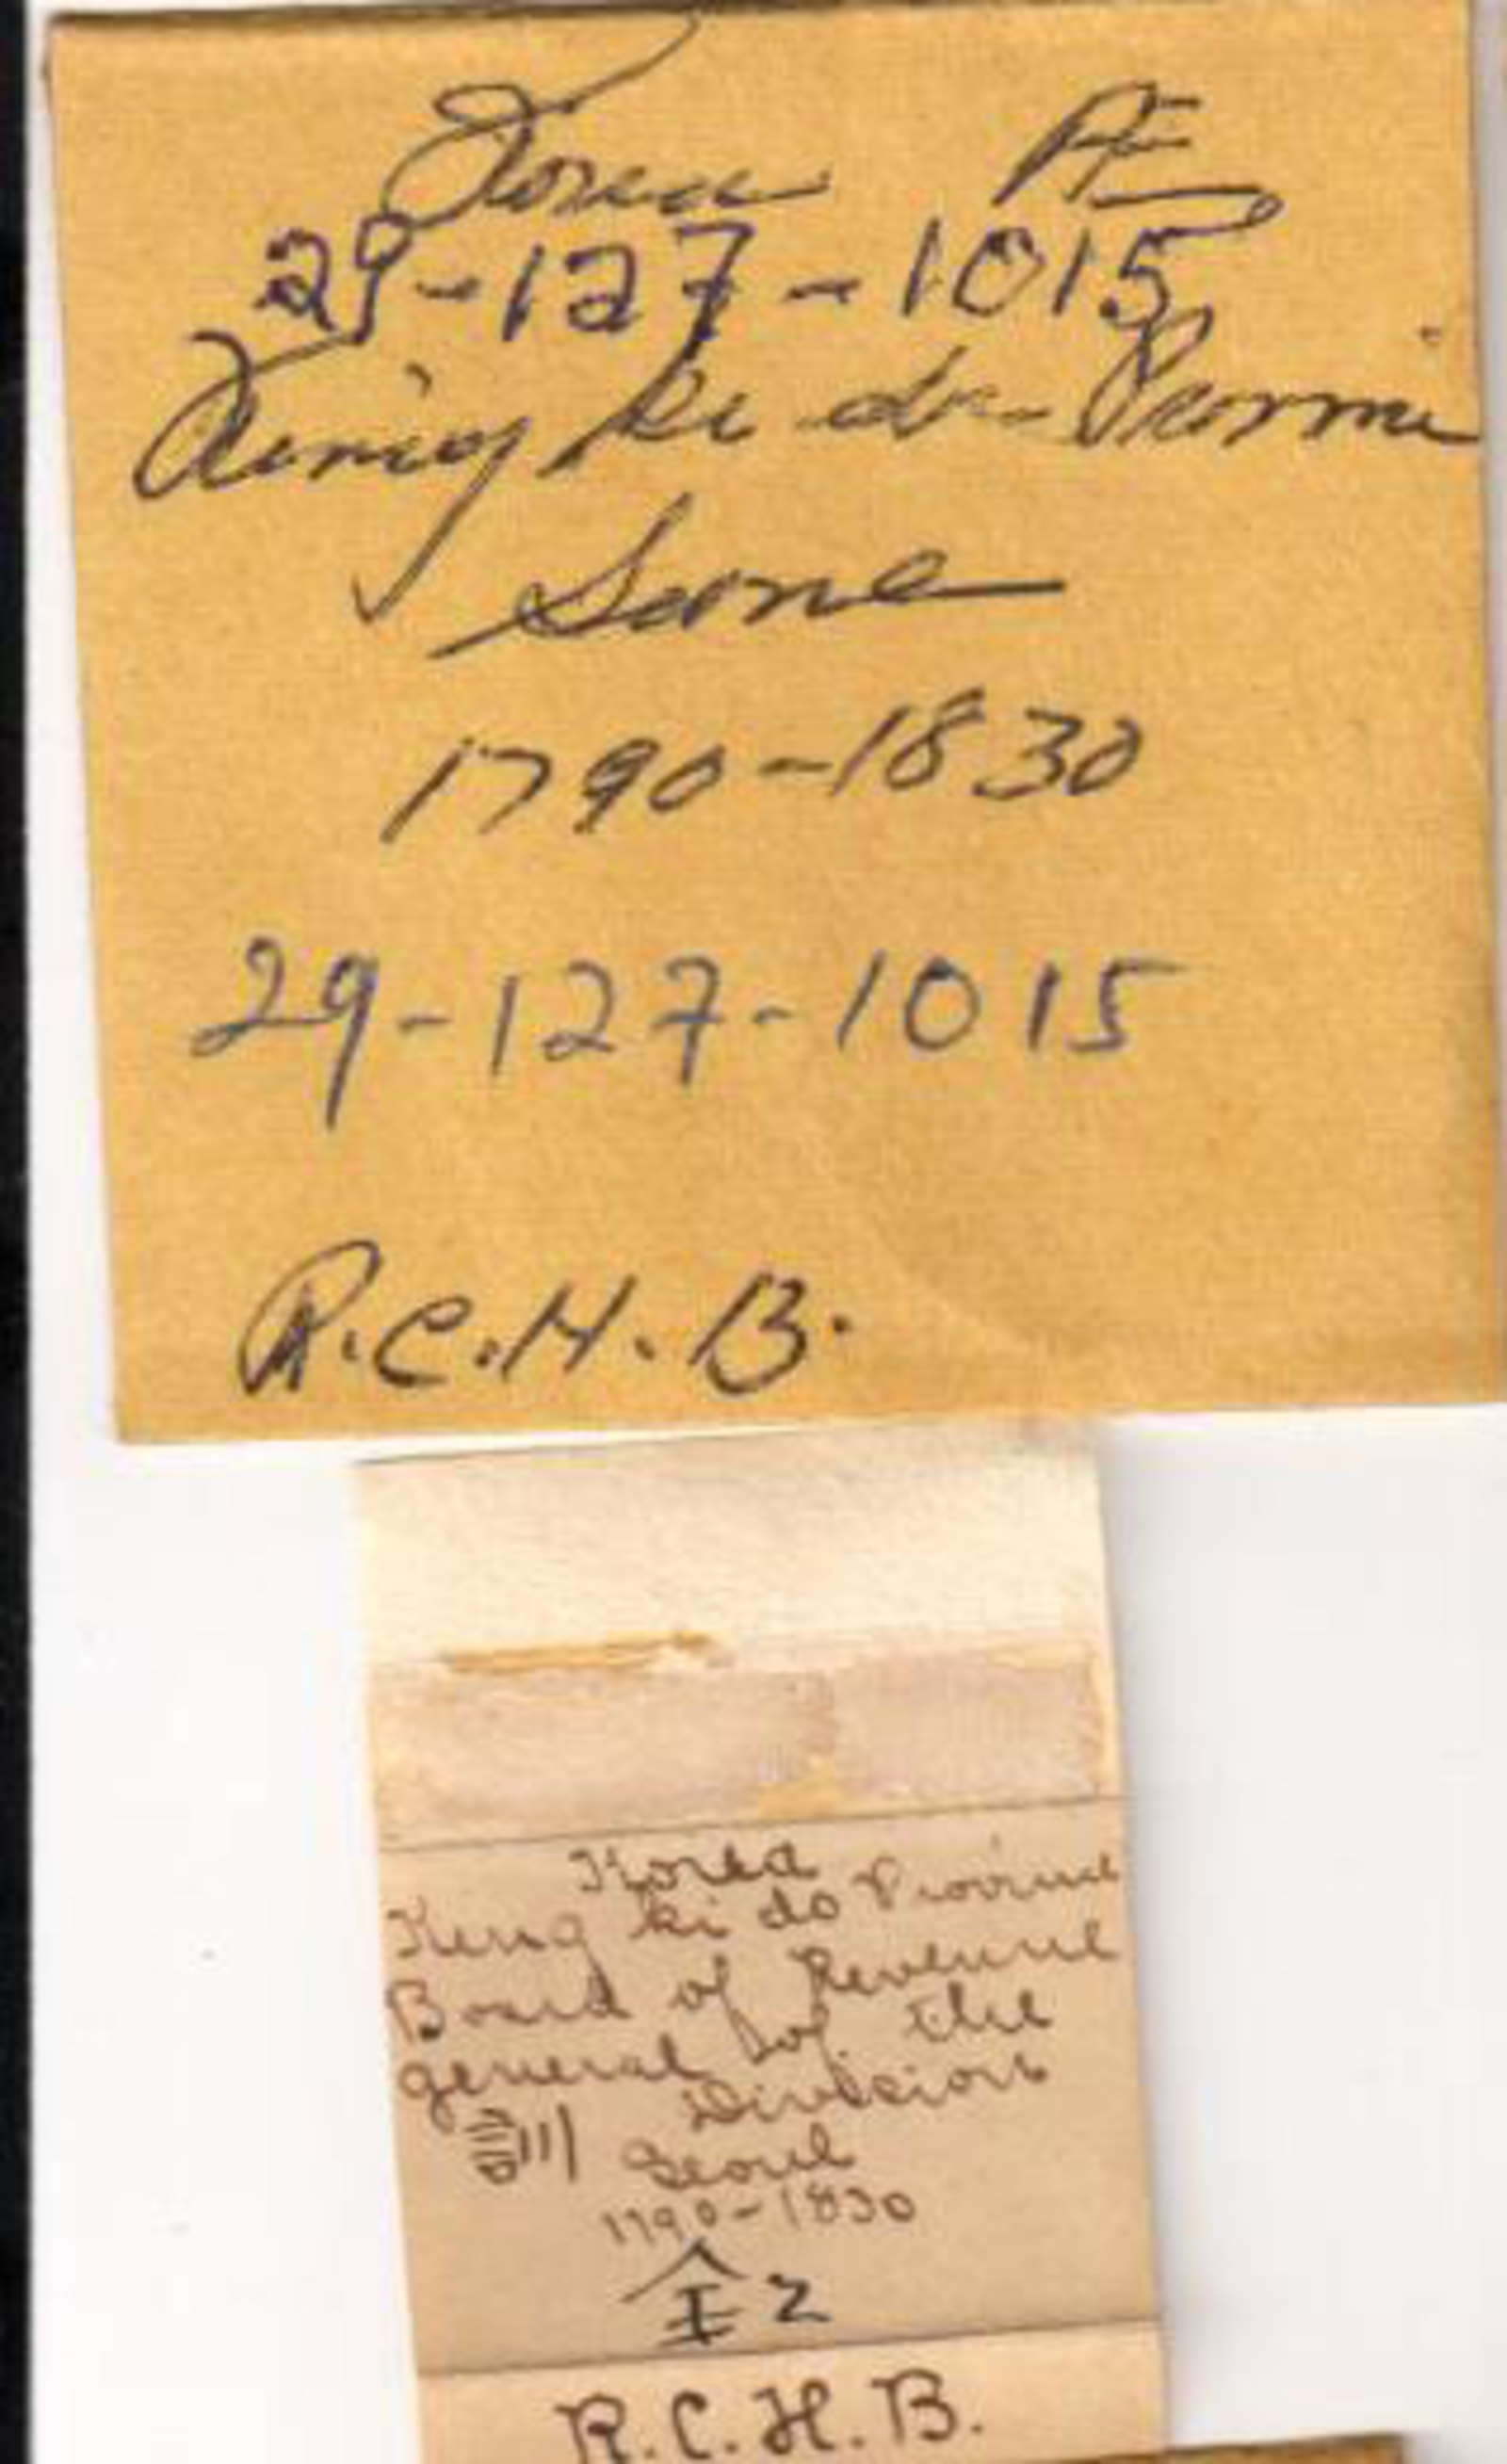 Korea AE
29-127-1015
Keng ki do Provinc
Seoul
1790-1830
29-127-1015
R.C.H.B.
Korea
Keng ki do Province
Board of Revenue
general of the
訓 Division
Seoul
1790-1830
全 2
R.C.H.B.